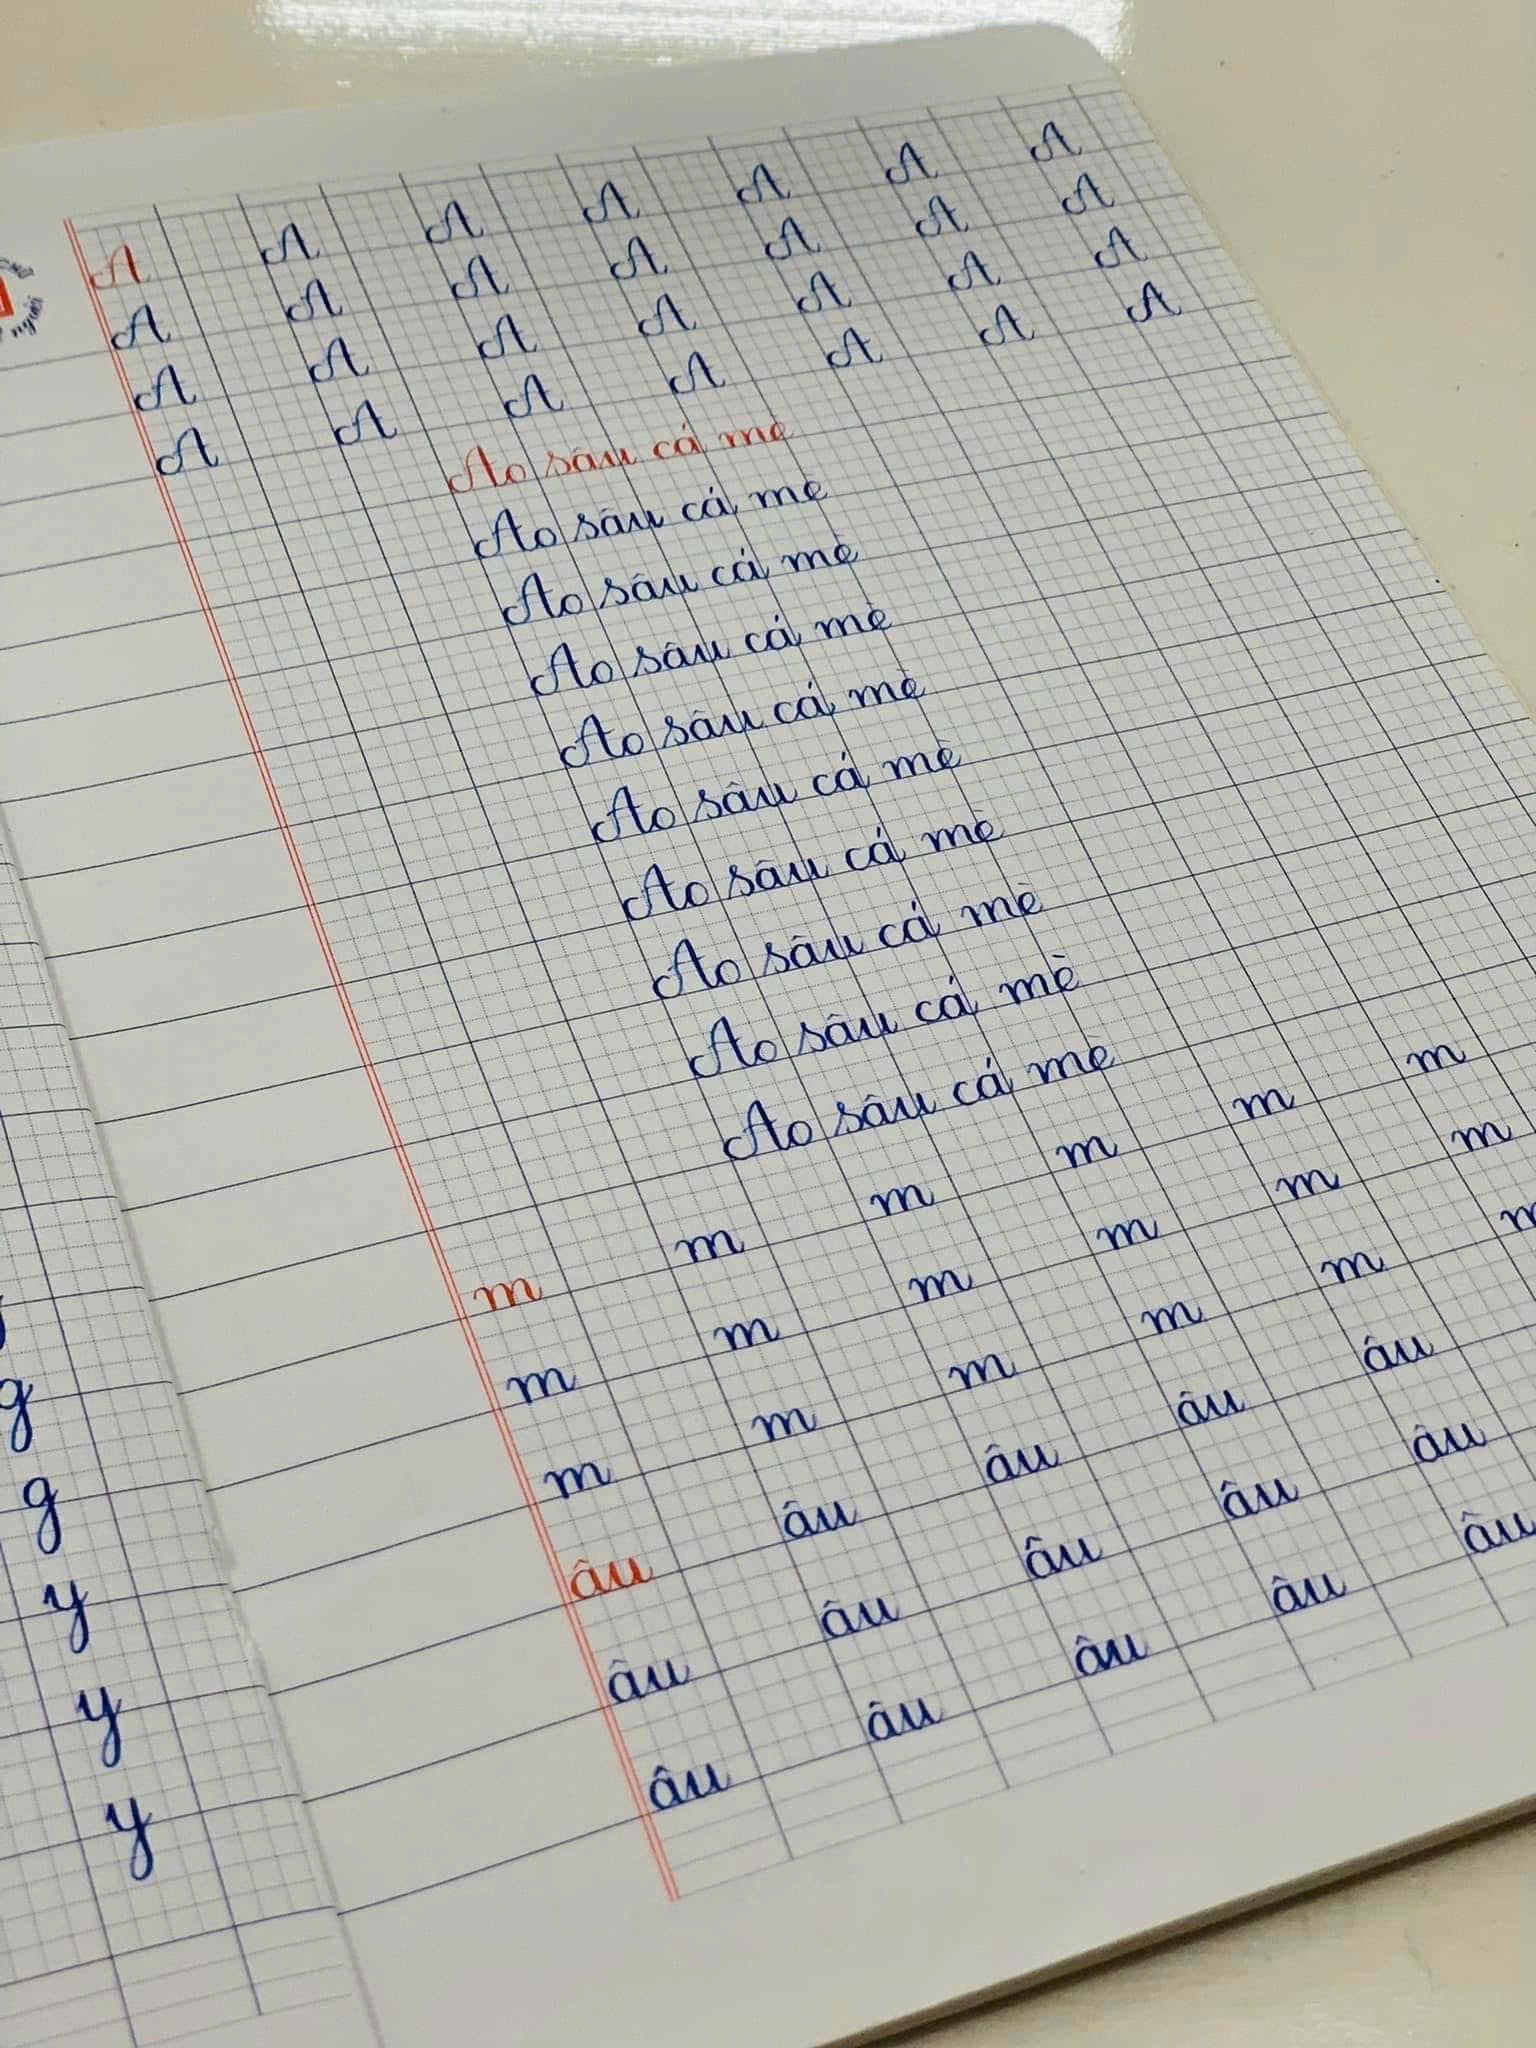 người
g
g
y
y
y
A A A A A A A
A A A A A A A
A A A A A A A
A A A A A A A
Ao sâu cá mè
Ao sâu cá mè
Ao sâu cá mè
Ao sâu cá mè
Ao sâu cá mè
Ao sâu cá mè
Ao sâu cá mè
Ao sâu cá mè
Ao sâu cá mè
Ao sâu cá mè
m m m m m m
m m m m m m
m m m m m m
âu âu âu âu âu
âu âu âu âu âu
âu âu âu âu âu